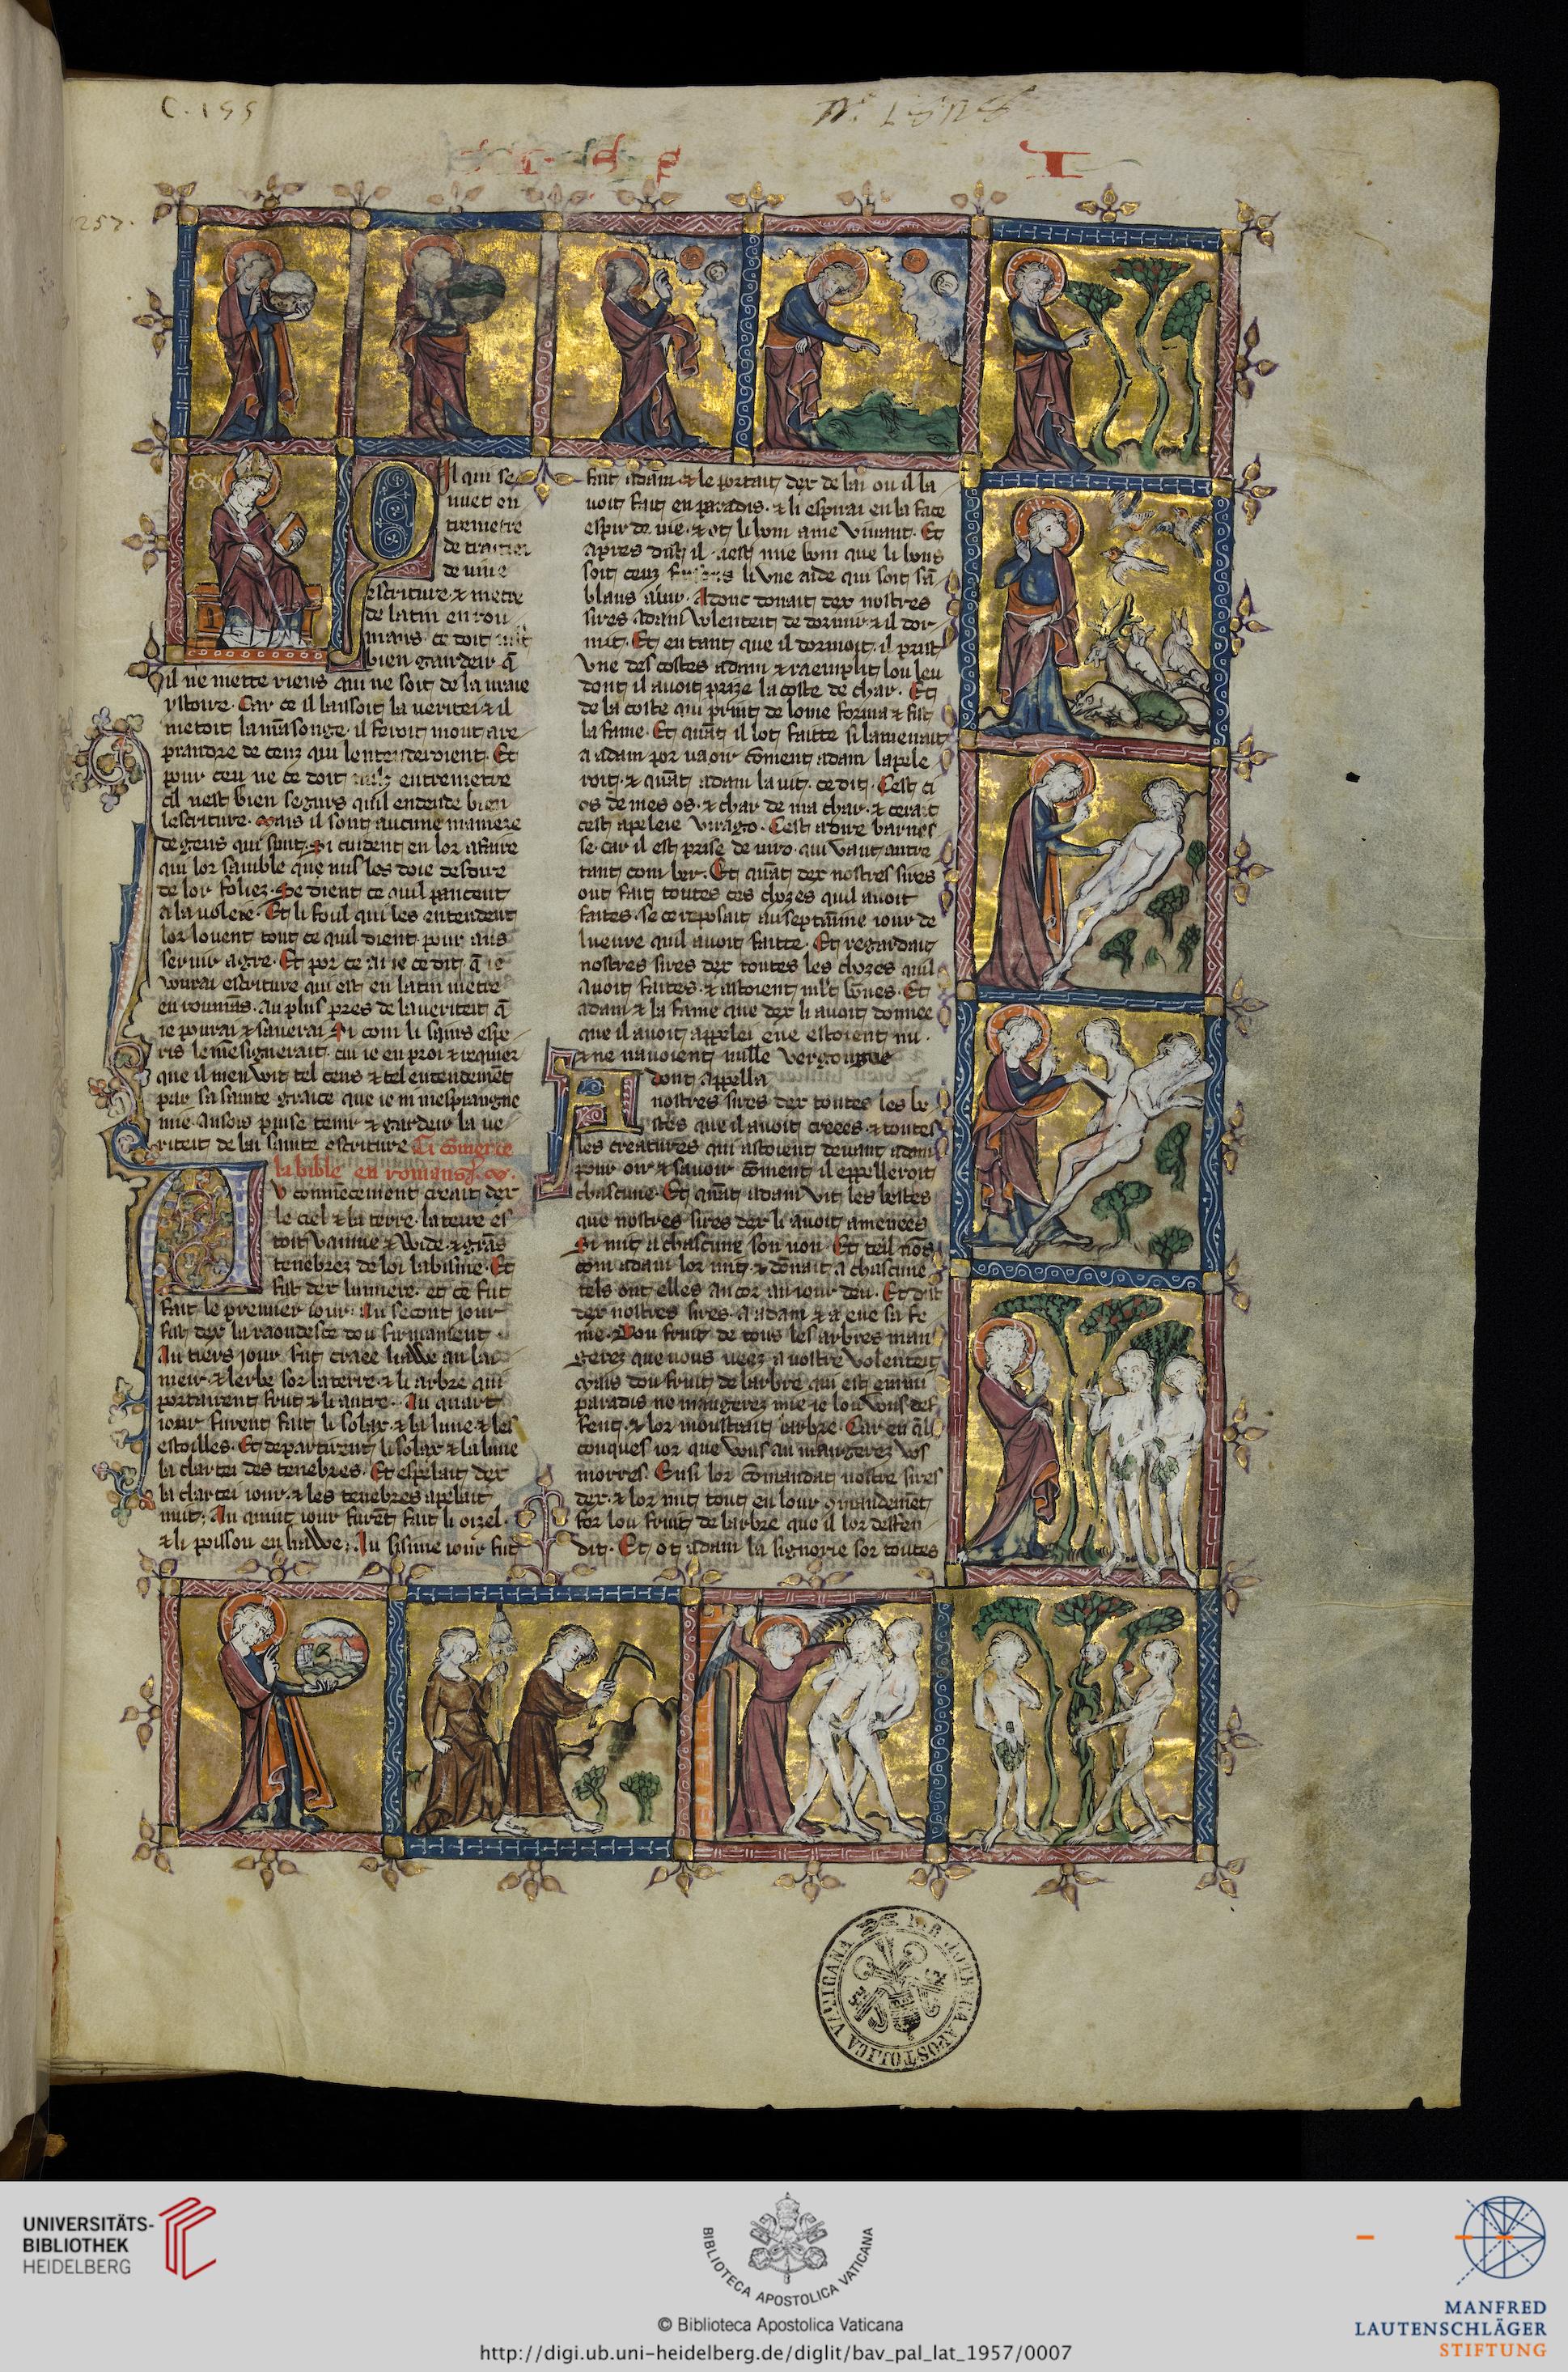 C. 155
257.
I
il qui se
muet en
tremetre
de traitier
de uiue
escriture & metre
de latin en rou
mans. ce doit
bien gardeir q̄
il ne mette riens qui ne soit de la uraie
ystoire. Car ce il laissoit la ueritei & il
metoit la māsonge. il feroit mout a re
prandre de ceuz qui l'entenderoient. Et
pour ceu ne ce doit nulz entremetre
cil nest bien segurs quil entende bien
lescriture. Mais il sont aucune maniere
de gens qui sunt. Si cuident en lor afaire
qui lor samble que nus les doie desdire
de lor foliez. Se dient ce quil pancent
a la uolere. Et li foul qui les entendent
lor louent tout ce quil dient pour aus
seruir a gre. Et por ce ai ie ce dit q̄ ie
uourai escriture qui est en latin metre
en roumās. au plus pres de la ueriteit q̄
ie pourai & sauerai Si com li sains espe
ris le mēsignerait. cui ie en proi & requier
que il men doit tel cens & tel entendemēt
par sa sainte graice que ie ni mesprangne
mie. ansois puise tenir & gardeir la ue
riteit de lai sainte escriture Ci cōmence
la bible en romans
v commecement creait dex
le ciel & la terre. la terre es
toit vainne & wide. & grās
tenebrez de lor labisme. Et
fist dex lumiere. et ce fut
fait le premier iour. Au secont iour
fist dex la raondesce dou firmament
Au tiers iour fut craee liawe an la
meir. & lerbe sor la terre. & li arbre qui
portairent fruit & li autre. Au quart
iour furent fait li solax. & la lune. & les
estoilles. Et departirent li solax & la lune
la clartei des tenebres. Et espelait dex
la clartei iour. & les tenebres apelait
nuit. Au quint iour furēt fait li oizel.
& li poisson en liawe. Au sisime iour fut
fait adam. & le portait dex de lai ou il la
uoit fait en paradis. & li espirai en la face
espir de uie. & ot li hom ame viuant. Et
apres dist il. nest mie bom que li hons
soit ceuz faisons li vne aide qui soit sā
blans a lui. Adonc donait dex nostres
sires adam volenteit de dormir. & il dor
mit. Et en tant que il dormoit. il prist
vne des costes adam & raemplit lou leu
dont il auoit prize la coste de char. Et
de la coste qui prinst de lome forma & fist
la fame. Et quāt il lot faitte si lamenait
a adam por uaoir cōment adam lapele
roit. & quāt adam la uit. ce dit. Cest ci
os de mes os. & char de ma char. & cerait
ceste apeleie virago. Cest a dire barnes
se. car il est prise de uiro. qui vaut autre
tant com ber. Et quāt dex nostres sires
out fait toutes ces chozes quil auoit
faites. se ce reposait au septāme iour de
lueure quil auoit faitte. Et regardait
nostres sires dex toutes les chozes quil
auoit faites. & astoient mlt̄ bones. Et
adam & la fame que dex li auoit donnee
que il auoit appelei eue estoient nu.
& ne nauoient nulle vergongne
dont appella
nostres sires dex toutes les be
stes que il auoit creees. & toutes
les creatures qui astoient deuant adam
pour oir & sauoir cōment il eppelleroit
chascune. Et quāt adam vit les bestes
que nostres sires dex li auoit amenees
Si mit a chascune son non. Et teil nōs
com adam lor mit. & dōnait a chascune
tels ont elles ancor au iour deu. Et dit
dex nostres sires. a adam & a eue sa fe
me. Dou fruit de tous les arbres man
gerez que uous ueez a uostre volenteit
Mais dou fruit de larbre qui est enmi
paradis ne mangerez mie ie lou vous def
fent. & lor moustrait larbre. Car en q̄l
conques ior que vous an mangerez vos
morres. Ensi lor cōmandat nostre sires
dex. & lor mit tout en lour 9mandemēt
for lou fruit de larbre que il lor deffen
dit. Et ot adam la signorie sor toutes
BIBLIOTHECA APOSTOLICA VATICANA
UNIVERSITÄTS-
BIBLIOTHEK
HEIDELBERG
BIBLIOTECA APOSTOLICA VATICANA
© Biblioteca Apostolica Vaticana
http://digi.ub.uni-heidelberg.de/diglit/bav_pal_lat_1957/0007
MANFRED
LAUTENSCHLÄGER
STIFTUNG